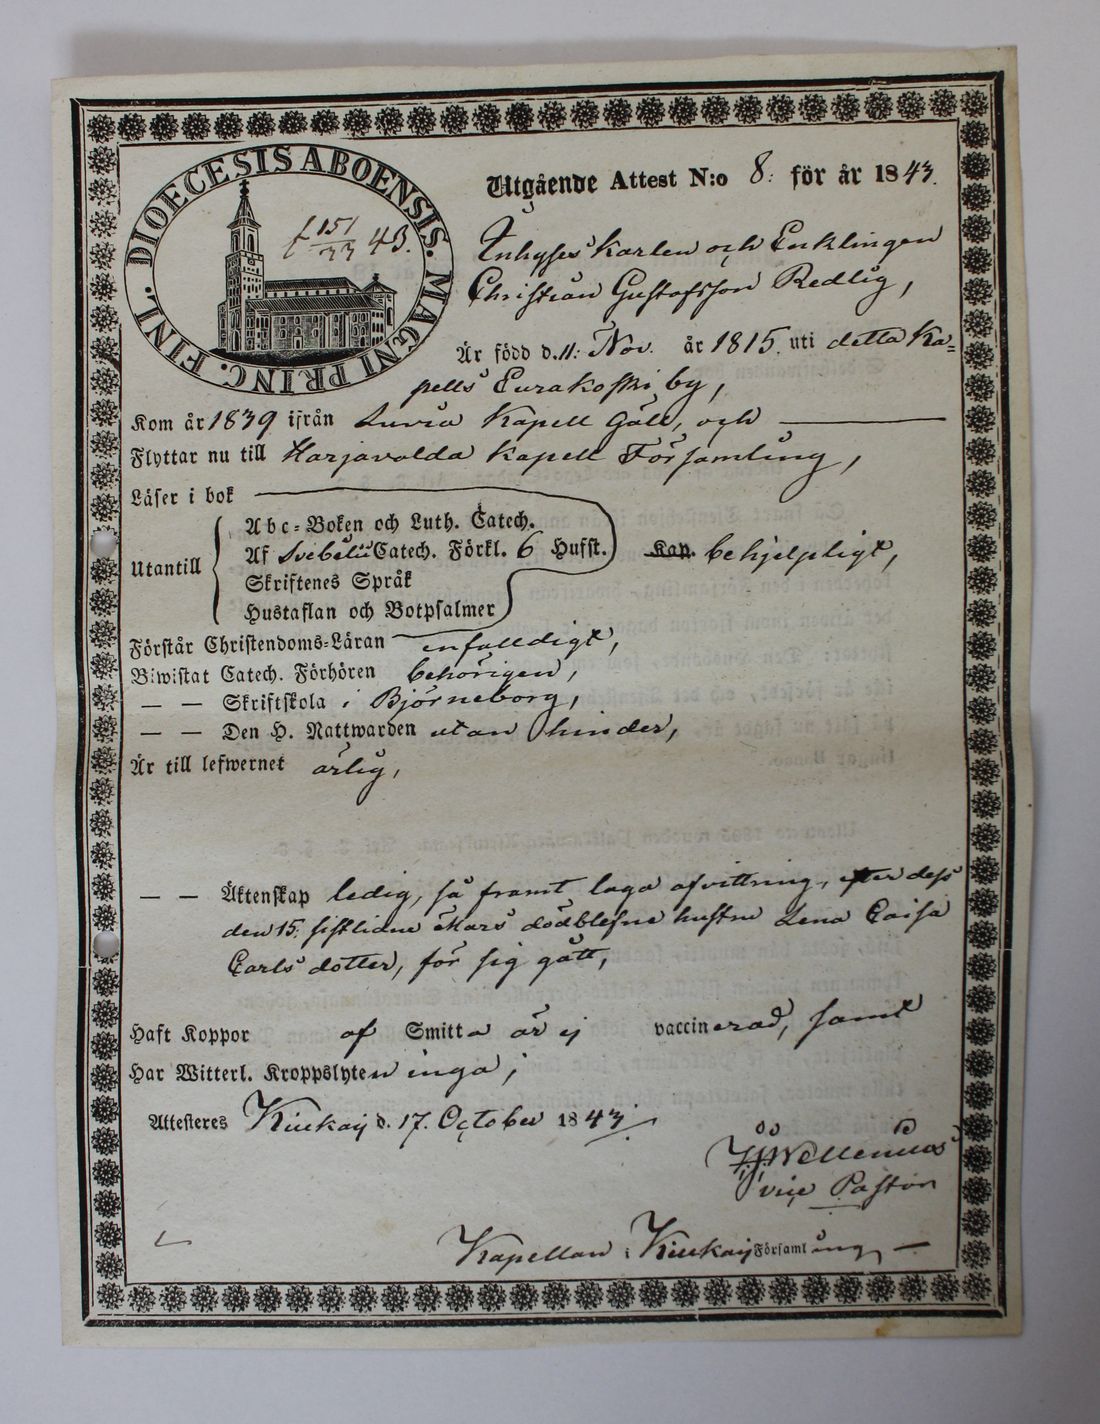 DIOECESIS ABOENSIS. MAGNI PRINC. FINL.
f 151/33 43.
Utgående Attest N:o 8: för år 1843.
Inhyses Karlen och Enklingen
Christian Gustafsson Redlig,
Är född d. 11: Nov. år 1815. uti detta Ka=
pells Eurakoski by,
Kom år 1839 ifrån Luvia Kapell Gäll, och
Flyttar nu till Harjavalda Kapell Församling,
Läser i bok
Utantill
Abc=Boken och Luth. Catech.
Af Svebelii Catech. Förkl. 6 Hufst. Kap. behjelpligt,
Skriftenes Språk
Hustaflan och Botpsalmer
Förstår Christendoms=Läran enfalldigt,
Biwistat Catech. Förhören behörigen,
— — Skriftskola i Björneborg,
— — Den H. Nattwarden utan hinder,
Är till lefwernet ärlig,
— — Äktenskap ledig, så framt laga afvittring, efter dess
den 15. sistlidne Mars dödblefne hustru Lena Caisa
Carls dotter, för sig gått,
Haft Koppor af Smitta är ej vaccinerad, samt
Har Witterl. Kroppslyten inga;
Attesteres Kiukais d. 17. October 1843
Wellenius
vice Pastor
Kapellan i Kiukais Församling